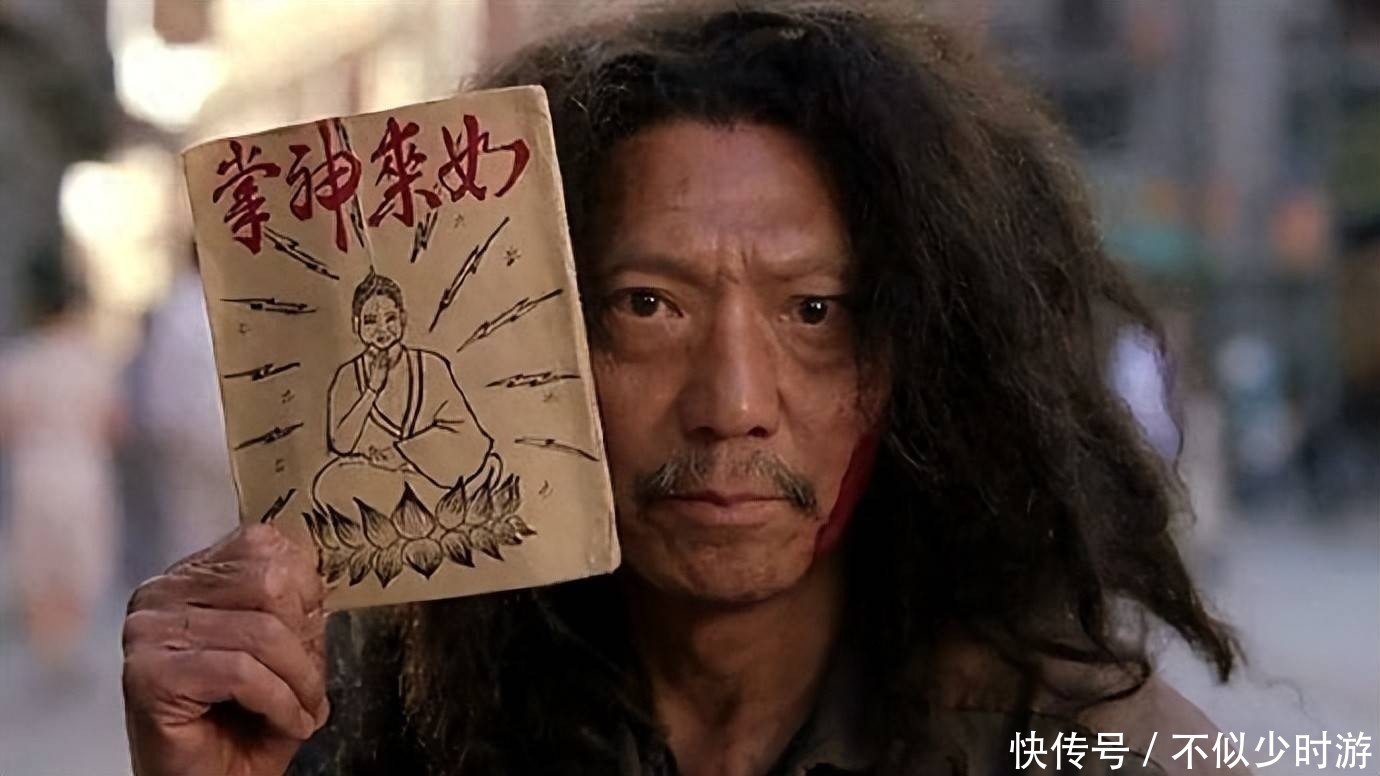 如來神掌
快传号 / 不似少时游